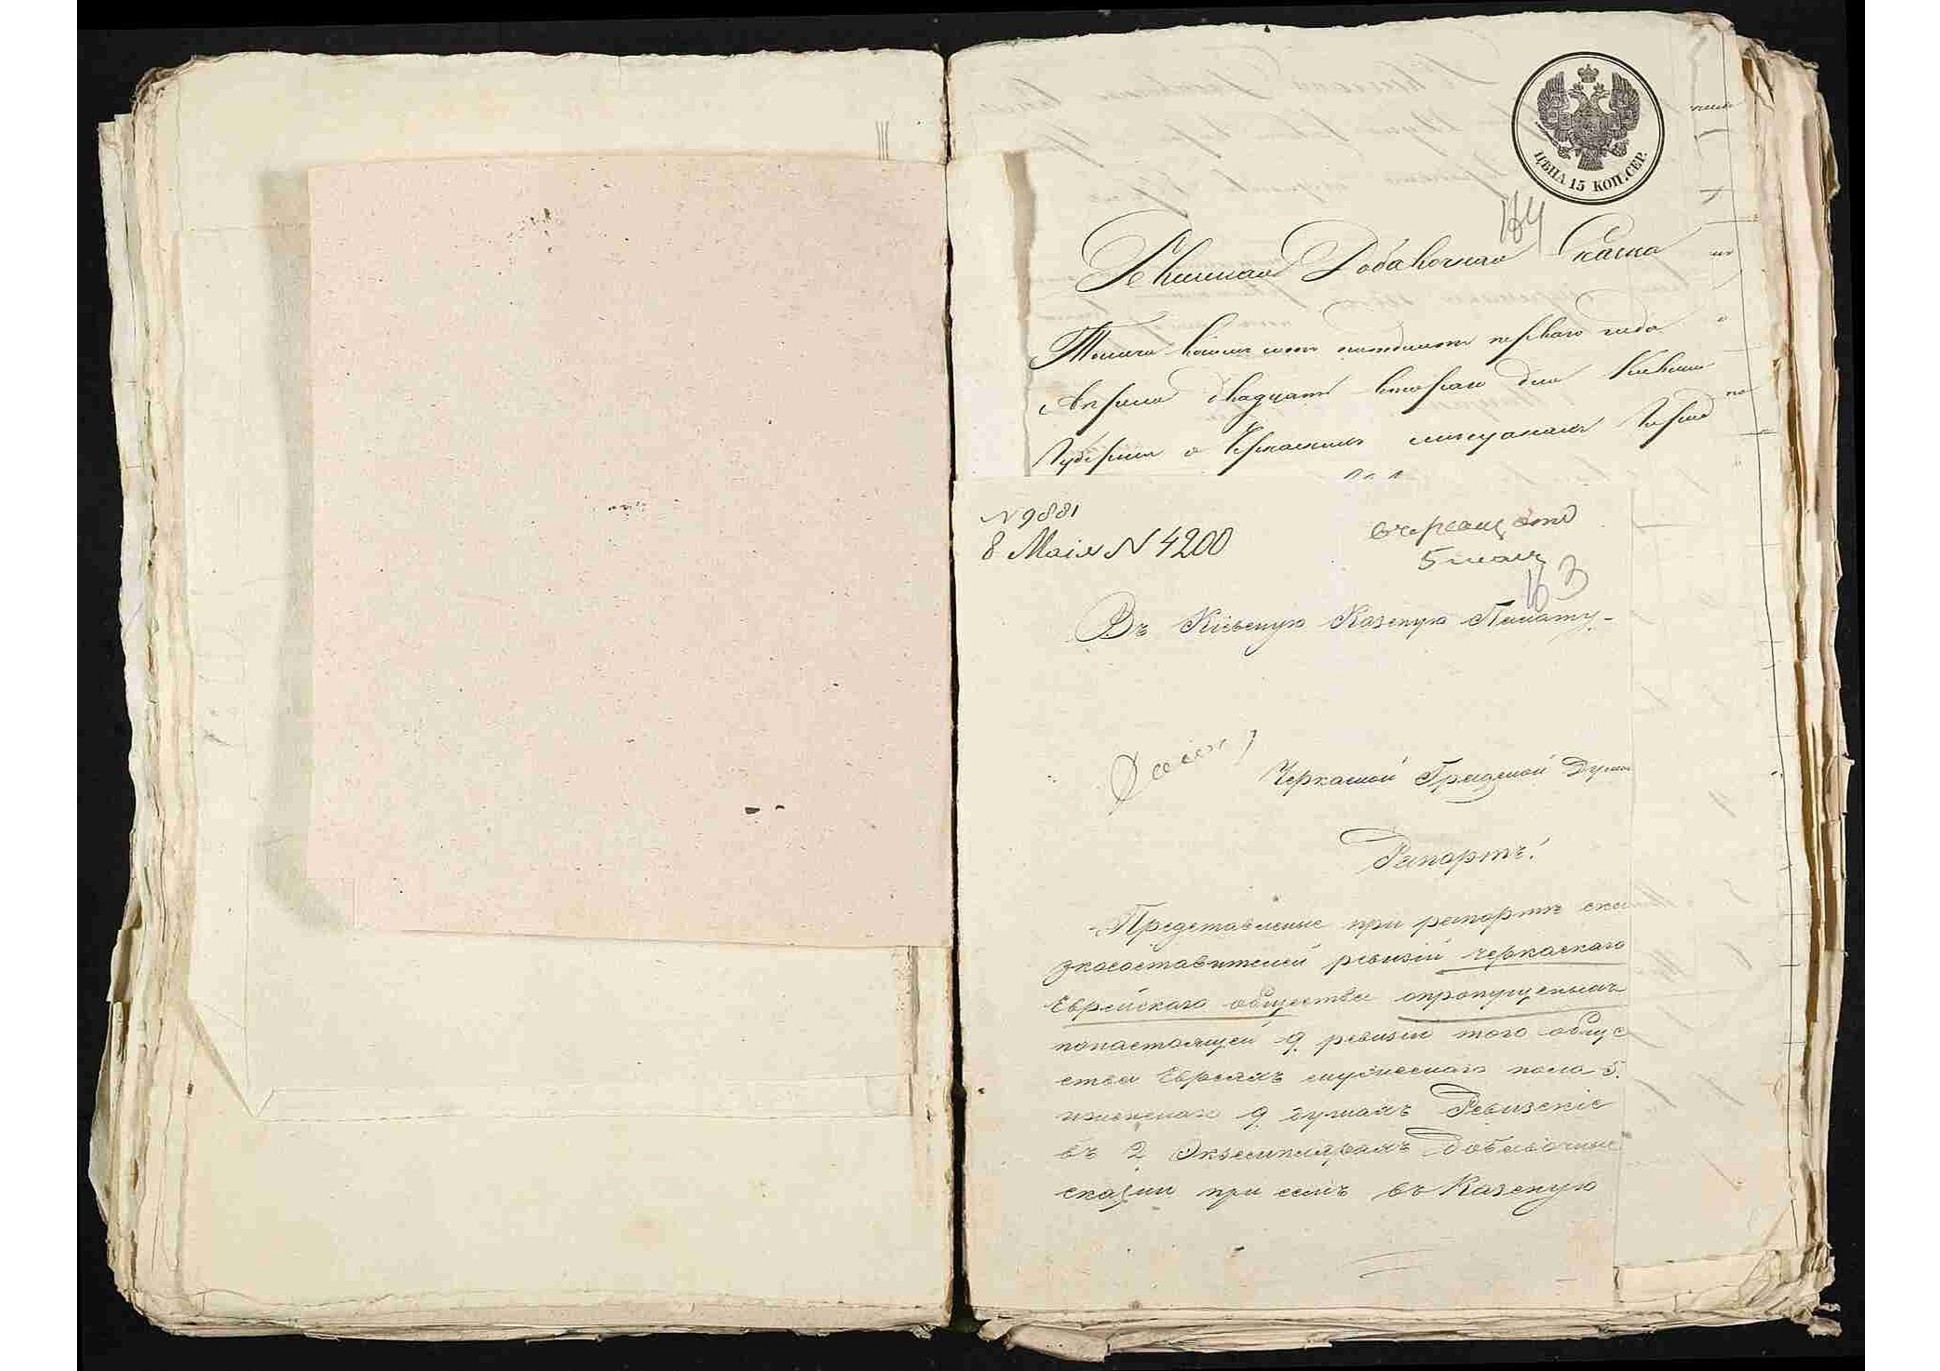 ЦѢНА 15 КОП. СЕР.
164
Ревизкая Добавочная Скаска
Тысяча восемь сотъ пятдесятъ перваго года
Апреля двадцать втораго дня Киевской
Губернии о Черкаскихъ мещанахъ
N 9881
8 Маія N 4200
5 мая
163
Въ Кіевскую Казеную Палату
Черкаской Градской Думы
Рапортъ!
Представленые при рапорте ска
зкосоставителей ревизіи черкаскаго
Еврейскаго общества опропущеныхъ
понастоящей 9. ревизіи того общес
тва Евреяхъ мужескаго пола 5.
женскаго 9 душахъ Ревизскіе
въ 2 Экземплярахъ добавочные
скаски при семъ въ Казеную